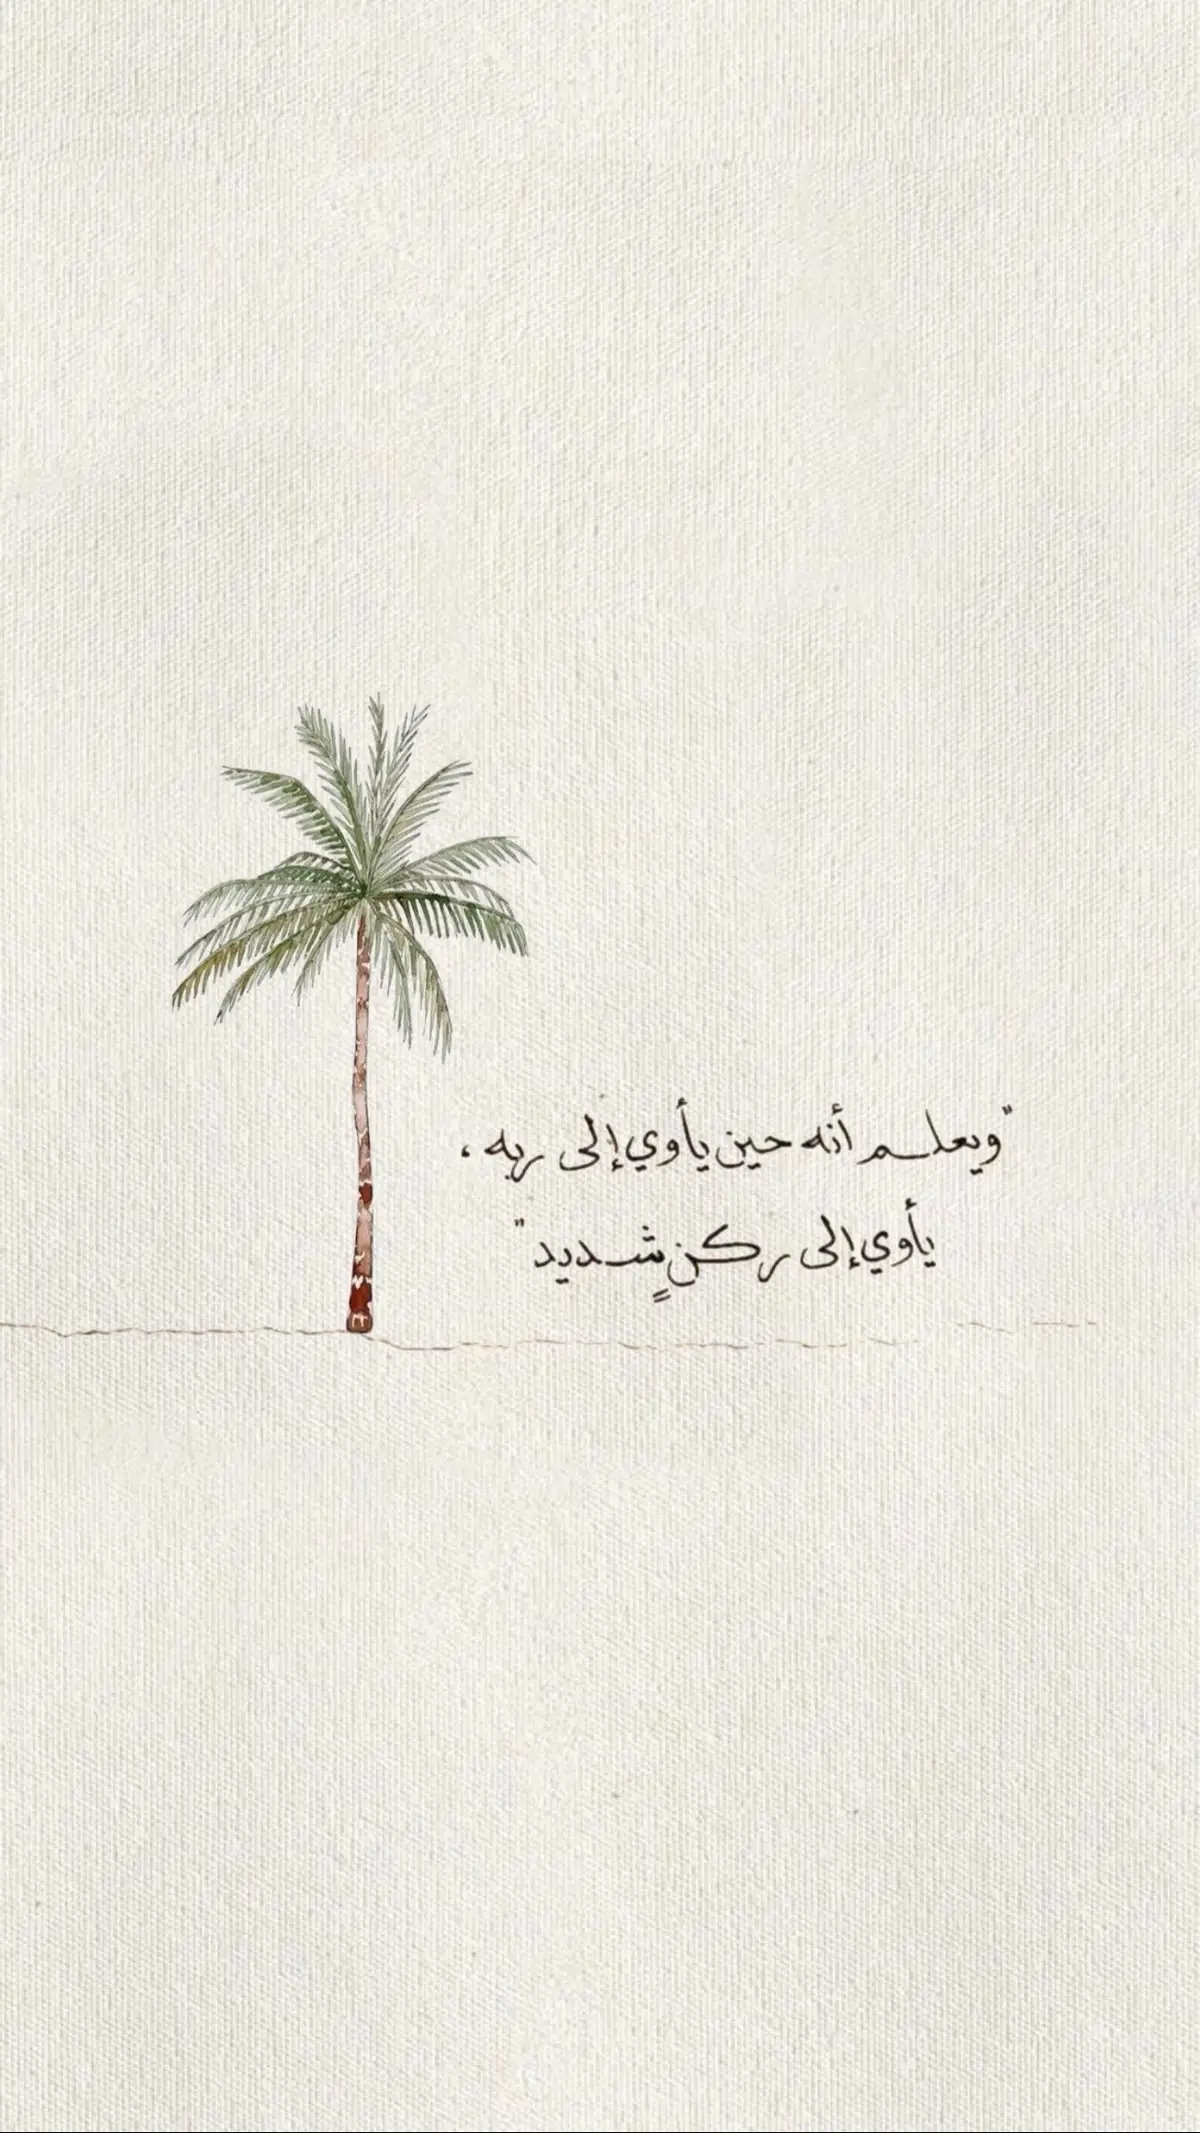 "ويعلم أنه حين يأوي إلى ربه ،
يأوي إلى ركنٍ شديد"